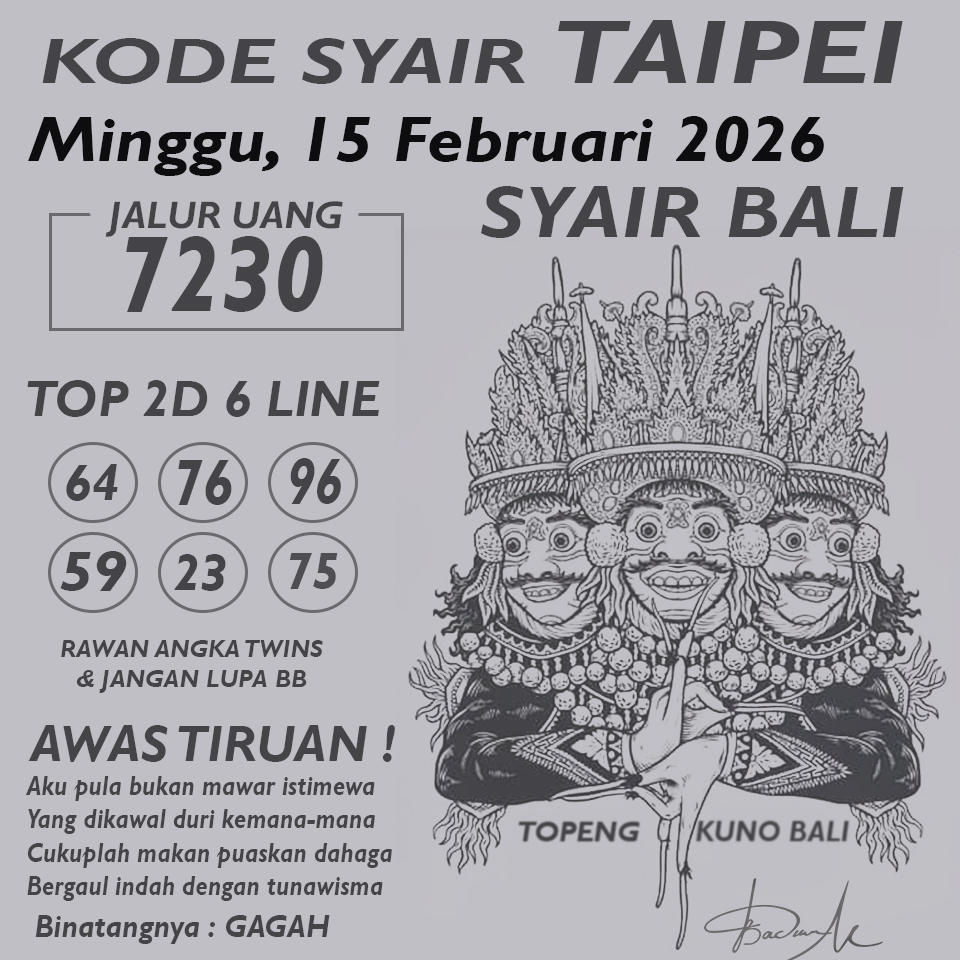 KODE SYAIR TAIPEI
Minggu, 15 Februari 2026
SYAIR BALI
JALUR UANG
7230
TOP 2D 6 LINE
64 76 96
59 23 75
RAWAN ANGKA TWINS
& JANGAN LUPA BB
AWAS TIRUAN !
Aku pula bukan mawar istimewa
Yang dikawal duri kemana-mana
Cukuplah makan puaskan dahaga
Bergaul indah dengan tunawisma
Binatangnya : GAGAH
TOPENG KUNO BALI